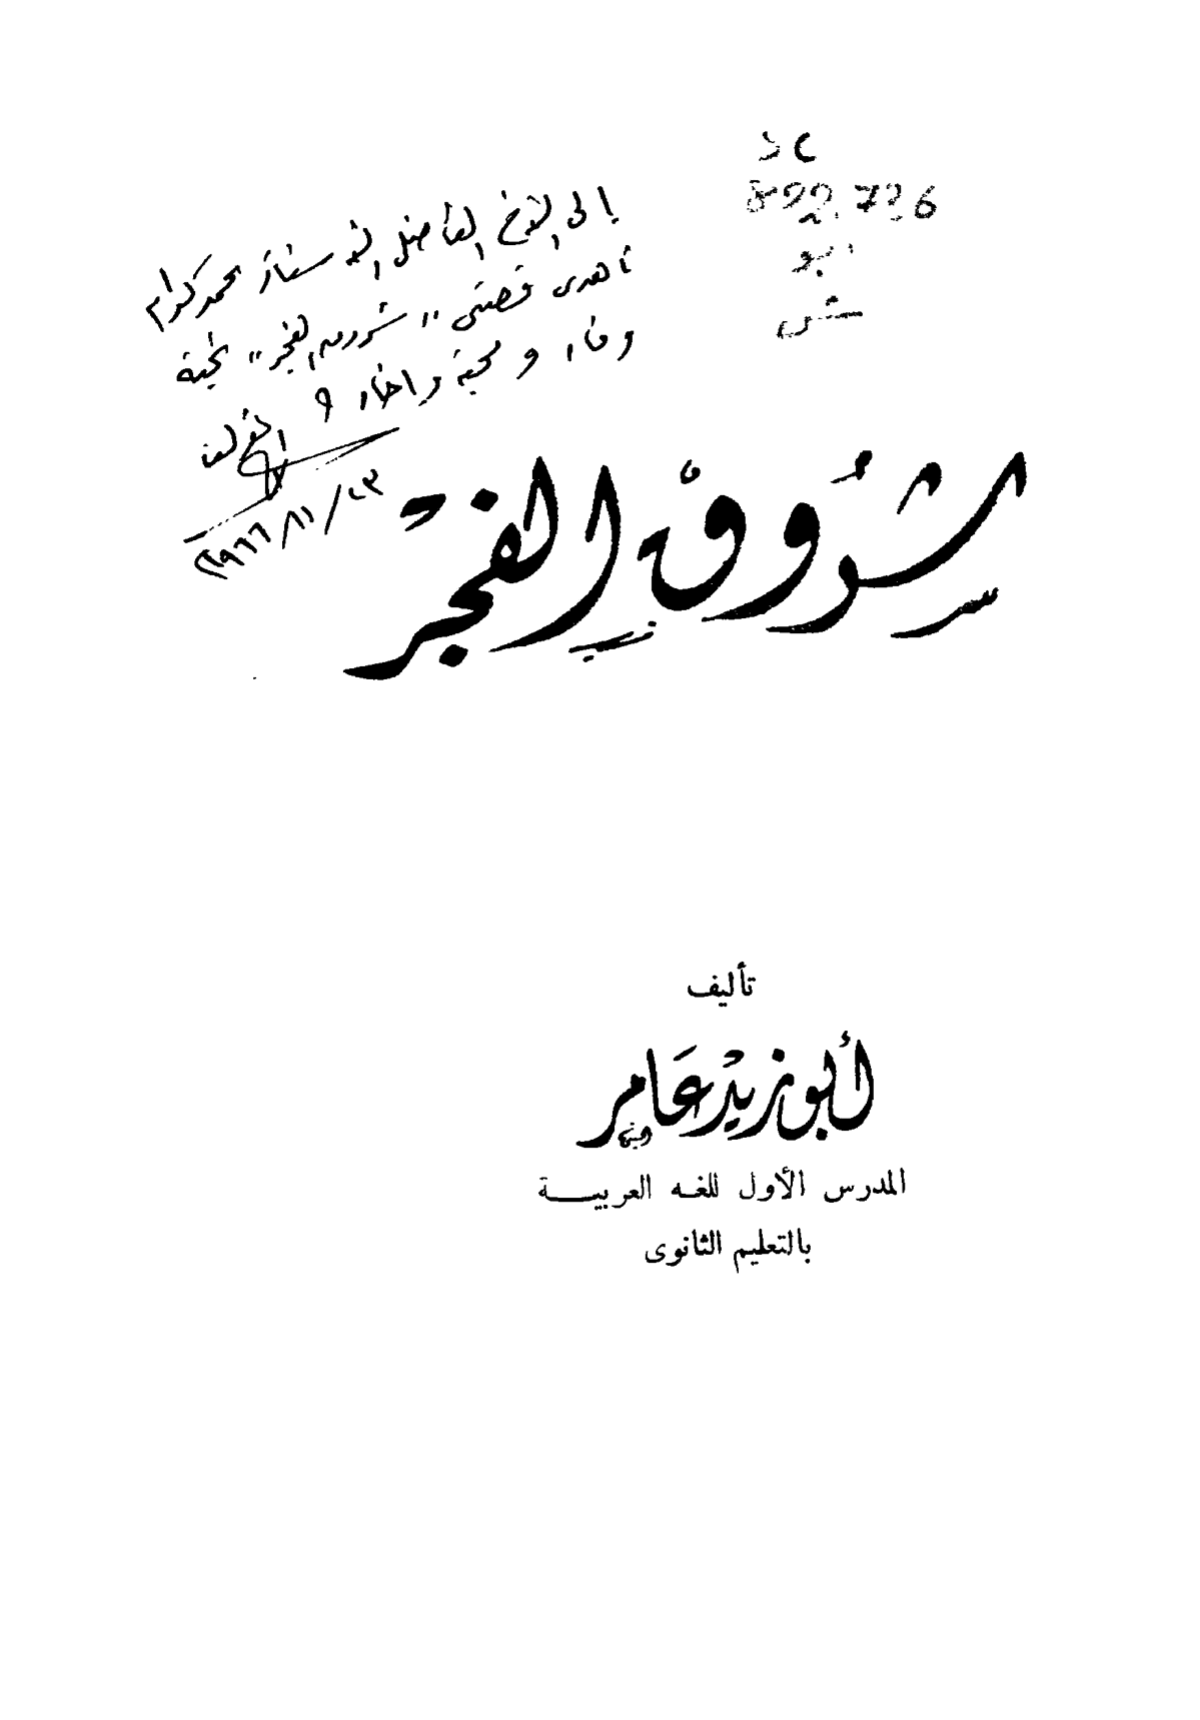 892.736
ابو
ش
إلى الأخ الفاضل الأستاذ محمد كرام
أهدى قصتى " شروق الفجر " تحية
وفاء ومحبة وإخاء
المؤلف
٢٣/١١/١٩٦٦
شروق الفجر
تأليف
أبو زيد عامر
المدرس الأول للغه العربيـــة
بالتعليم الثانوى